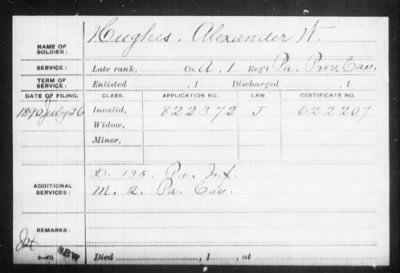 NAME OF SOLDIER: Hughes, Alexander H.
SERVICE: Late rank, Co. A, 1 Reg't Pa. Prov. Cav.
TERM OF SERVICE: Enlisted , 1 Discharged , 1
DATE OF FILING. CLASS. APPLICATION NO. LAW. CERTIFICATE NO.
1890 July 26 Invalid, 822372 J 622207
Widow,
Minor,
ADDITIONAL SERVICES: D. 135. Pa. Inf.
M. 2. Pa. Cav.
REMARKS:
Died , 1 , at